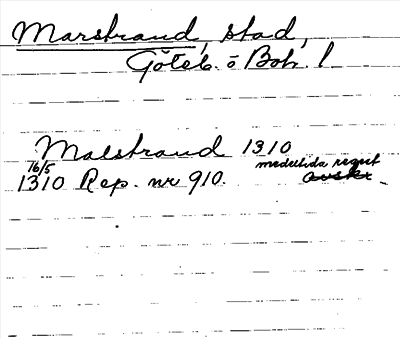 Marstrand, stad,
Göteb. o Boh. l
Malstrand 1310
16/5 medeltida regest
1310 Rep. nr 910. avskr.